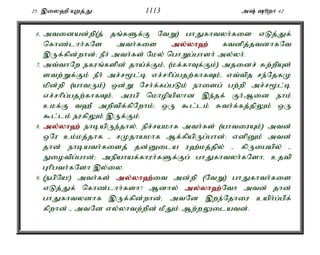 25 இலைஹி யுறத்து 1113 அஷ் ஷூறா 42
6. அவனையன்றி(த் தங்களுக்கு வேறு) பாதுகாவலர்களை எடுத்துக்
கொண்டார்களே அவர்களை அல்லாஹ் கவனித்தவனாகவே
இருக்கின்றான்; நீர் அவர்கள் மேல் பொறுப்பாளர் அல்லர்.
7. அவ்வாறே நகரங்களின் தாய்க்கும், (மக்காவுக்கும்) அதனைச் சுற்றியுள்
ளவற்றுக்கும் நீர் அச்சமூட்டி எச்சரிப்பதற்காகவும், எவ்வித சந்தேகமு
மின்றி (யாவரும்) ஒன்று சேர்க்கப்படும் நாளைப் பற்றி அச்சமூட்டி
எச்சரிப்பதற்காகவும், அரபி மொழியிலான இந்தக் குர்ஆனை நாம்
உமக்கு வஹீ அறிவிக்கிறோம்; ஒரு கூட்டம் சுவர்க்கத்திலும் ஒரு
கூட்டம் நரகிலும் இருக்கும்.
8. அல்லாஹ் நாடியிருந்தால், நிச்சயமாக அவர்கள் (யாவரையும்) அவன்
ஒரே உம்மத்தாக - சமுதாயமாக ஆக்கியிருப்பான்; எனினும் அவன்
தான் நாடியவர்களைத் தன்னுடைய ரஹ்மத்தில் - கிருபையில் -
நுழைவிப்பான்; அநியாயக்காரர்களுக்குப் பாதுகாவலர்களோ, உதவி
புரிபவர்களோ இல்லை.
9. (நபியே!) அவர்கள் அல்லாஹ்வை அன்றி (வேறு) பாதுகாவலர்களை
எடுத்துக் கொண்டார்களா? ஆனால் அல்லாஹ்வோ அவன் தான்
பாதுகாவலனாக இருக்கின்றான். அவனே இறந்தோரை உயிர்ப்பிக்
கிறான் - அவனே எல்லாவற்றின் மீதும் ஆற்றலுடையவன்.